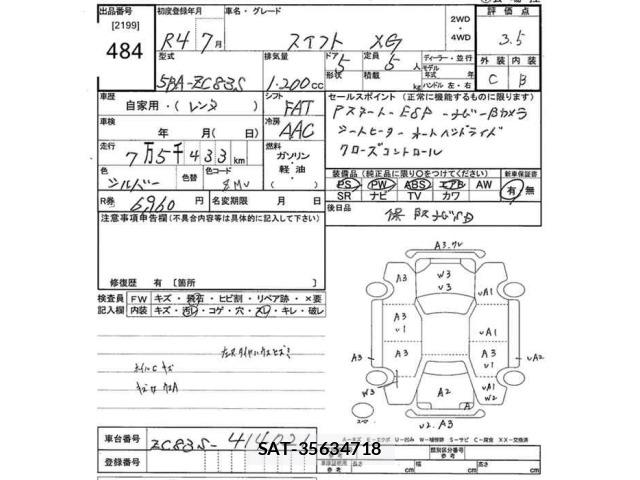 出品番号 初度登録年月 車名・グレード 2WD 4WD 評価点
[2199]
484 R4年 7月 スイフト XG 3.5
型式 排気量 ドア 形状 定員 積載 ディーラー・並行 モデル 年式 年 ハンドル 左・右 外装 内装
5BA-ZC83S 1.200cc 5 5人 kg C B
車歴 シフト セールスポイント(正常に機能するものに限ります)
自家用・(レンタ) FAT Pスタート-ESP-ナビ-Bカメラ
車検 年 月(日) 冷房 AAC シートヒーター オートヘッドライト
走行 燃料 クローズコントロール
7万5千433km ガソリン・軽油・( )
色 色替 色コード 装備品(純正品に限り○をつけてください) 新車保証書
シルバー PS PW ABS エアB AW 有・無
SR ナビ TV カワ
R券 6960円 名変期限 月 日 後日品 保 取 ナビSD
注意事項申告欄(不具合内容等は具体的に記入して下さい)
修復歴 有 [箇所 ]
検査員記入欄 FW キズ・飛石・ヒビ割・リペア跡・×要
内装 キズ・汚レ・コゲ・穴・スレ・キレ・破レ
ホイルC キズ
A3
W3
V3
A3
A3
V1
A3
A3
W3
A2
UA1
UA1
A3
V1
UA2
UA1
W2
U2.A3
車台番号 ZC83S-414021
登録番号
SAT-35634718
類別区分番号
長さ cm 幅 cm 高さ cm